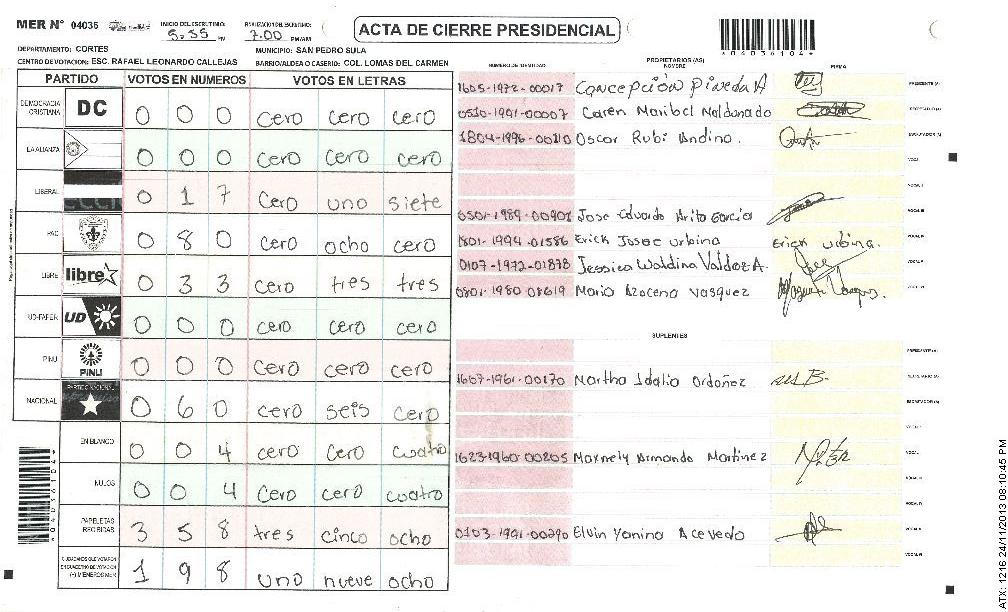 MER N° 04036
INICIO DEL ESCRUTINIO: 5:55 PM
FINALIZACION DEL ESCRUTINIO: 7:00 PM/AM
ACTA DE CIERRE PRESIDENCIAL
*04036104*
DEPARTAMENTO: CORTES
MUNICIPIO: SAN PEDRO SULA
CENTRO DE VOTACION: ESC. RAFAEL LEONARDO CALLEJAS
BARRIO/ALDEA O CASERIO: COL. LOMAS DEL CARMEN
PARTIDO VOTOS EN NUMEROS VOTOS EN LETRAS
DEMOCRACIA CRISTIANA DC 0 0 0 cero cero cero
LA ALIANZA 0 0 0 cero cero cero
LIBERAL 0 1 7 Cero uno siete
PAC 0 8 0 cero ocho cero
LIBRE libre 0 33 cero tres tres
UD-FAPER UD 0 0 0 cero cero cero
PINU PINU 0 0 0 cero cero cero
NACIONAL PARTIDO NACIONAL 0 6 0 cero seis cero
EN BLANCO 0 0 4 cero cero cuatro
NULOS 0 0 4 cero cero cuatro
PAPELETAS RECIBIDAS 3 5 8 tres cinco ocho
CIUDADANOS QUE VOTARON EN CUADERNO DE VOTACION (+) MIEMBROS MER 1 9 8 uno nueve ocho
*04036104*
PROPIETARIOS (AS)
NUMERO DE IDENTIDAD NOMBRE FIRMA
1605-1972-00017 Concepción Pineda A PRESIDENTE (A)
0510-1991-00007 Caren Maribel Maldonado SECRETARIO (A)
1804-1996-00210 Oscar Rubi Andino. ESCRUTADOR (A)
VOCAL I
VOCAL II
0501-1989-00901 Jose Eduardo Arita Garcia VOCAL III
1801-1994-01586 Erick Josec urbina Erick urbina. VOCAL IV
0107-1972-01878 Jessica Waldina Valdez A. VOCAL V
0801-1980 08619 Mario Azocena Vasquez VOCAL VI
SUPLENTES
PRESIDENTE (A)
1607-1961-00170 Martha Idalia Ordoñez SECRETARIO (A)
ESCRUTADOR (A)
VOCAL I
1623-1960-00205 Maxnely Armando Martinez VOCAL II
VOCAL III
VOCAL IV
0103-1991-00290 Elvin Yanina Acevedo VOCAL V
VOCAL VI
ATX: 1216 24/11/2013 08:10:45 PM